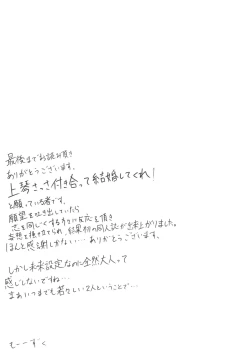 最後までお読み頂き
ありがとうございます。
上琴さっさと付き合って結婚してくれ!
と願っている者です。
願望を吐き出していたら
志を同じくする方々に反応を頂き
妄想を捗らせてられ、結果初の同人誌が出来上がりました。
ほんと感謝しかない…ありがとうございます。
しかし未来設定なのに全然大人って
感じしないですね…
まぁいつまでも若々しい2人ということで…
むーーずく